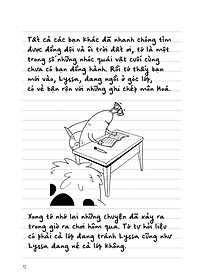 Tất cả các bạn khác đã nhanh chóng tìm
được đồng đội và ôi trời đất ơi, tớ là một
trong số những nhóc quái vật cuối cùng
chưa có bạn đồng hành. Rồi tớ thấy bạn
mới vào, Lyssa, đang ngồi ở góc lớp,
có vẻ bận rộn với ghi chép môn Hoá.
Xong tớ nhớ lại những chuyện đã xảy ra
trong giờ ra chơi hôm qua. Tớ tự hỏi liệu
có phải cả lớp đang tránh Lyssa cũng như
Lyssa đang né cả lớp không.